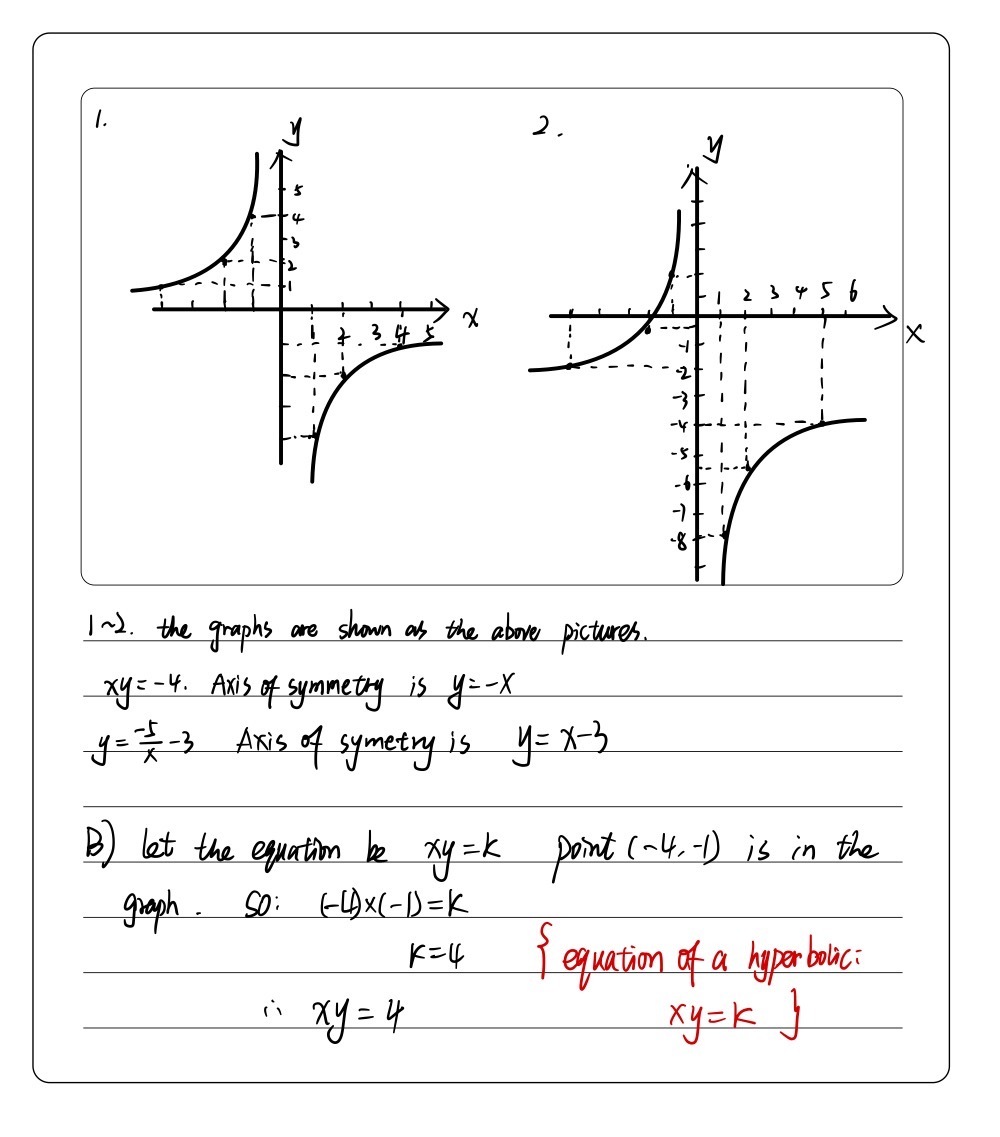 1.
2.
y
5
4
3
2
1
1 2 3 4 5 x
y
1 2 3 4 5 6
x
-1
-2
-3
-4
-5
-6
-7
-8
1~2. the graphs are shown as the above pictures.
xy=-4. Axis of symmetry is y=-x
y=-5/x-3 Axis of symetry is y=x-3
B) let the equation be xy=k point (-4,-1) is in the
graph. SO: (-4)×(-1)=k
k=4
{ equation of a hyperbolic:
∴ xy=4
xy=k }